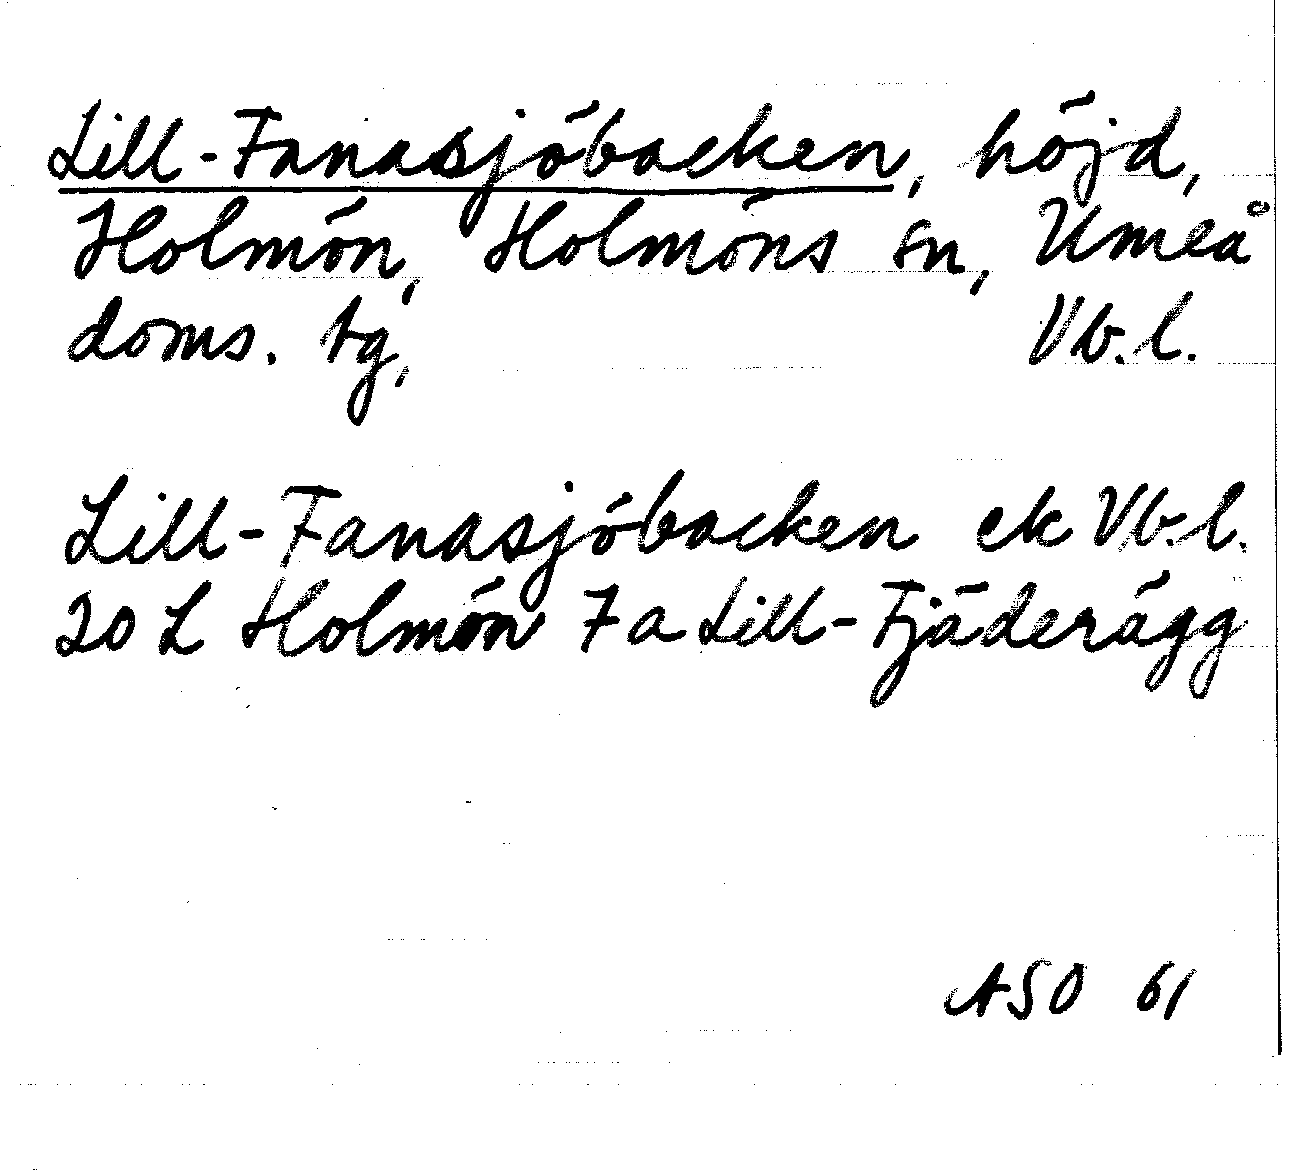 Lill-Fanasjöbacken, höjd,
Holmön, Holmöns sn, Umeå
doms. tg, Vb.l.
Lill-Fanasjöbacken ek Vb.l.
20 L Holmön 7 a Lill-Fjäderägg
ASO 61